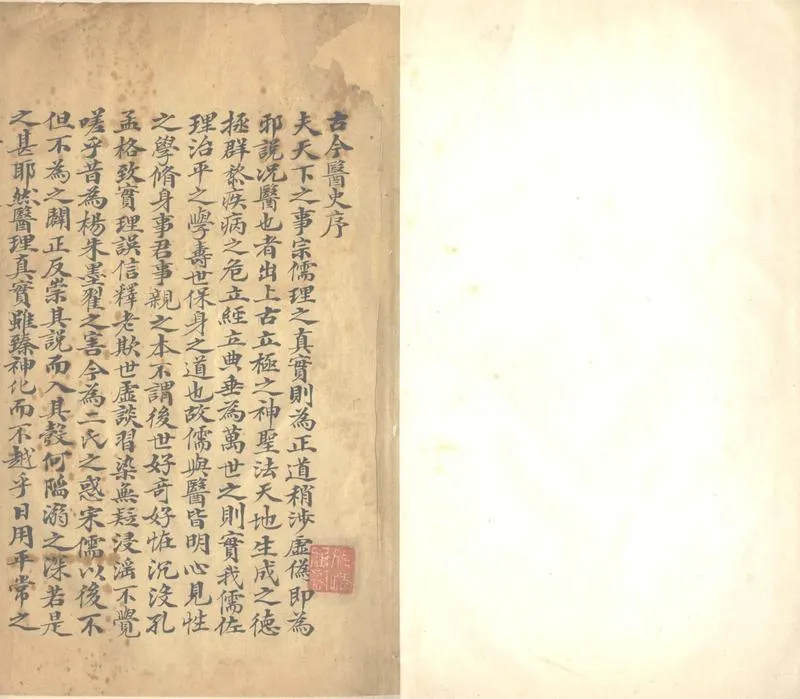 古今醫史序
夫天下之事宗儒理之真實則為正道稍涉虛偽即為
邪說況醫也者出上古立極之神聖法天地生成之德
拯群黎疾病之危立經立典垂為萬世之則實我儒佐
理治平之學壽世保身之道也故儒與醫皆明心見性
之學脩身事君事親之本不謂後世好奇好恠沉沒孔
孟格致實理誤信釋老欺世虛談習染無疑浸淫不覺
嗟乎昔為楊朱墨翟之害今為二氏之惑宋儒以後不
但不為之闢正反崇其說而入其彀何陷溺之深若是
之甚耶然醫理真實雖臻神化而不越乎日用平常之